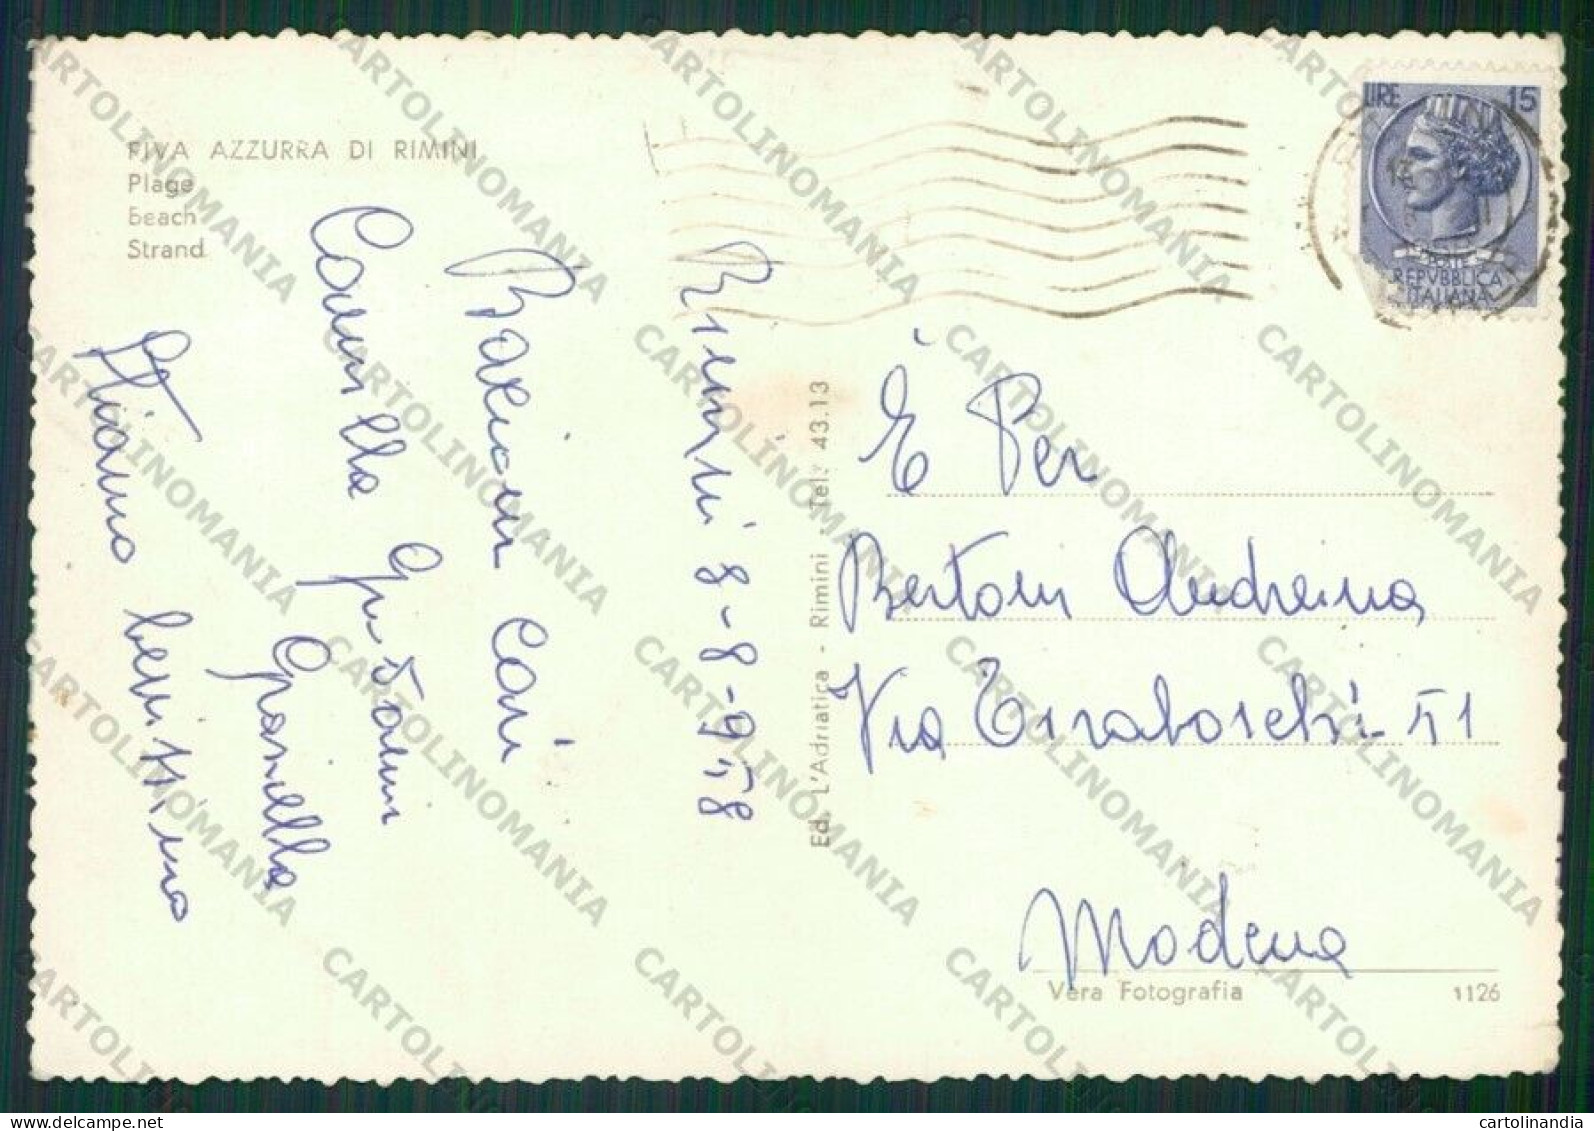 RIVA AZZURRA DI RIMINI
Plage
Beach
Strand
Rimini 8-8-958
Bacioni cari
Camilla Graziella
Stiamo benissimo
Ed. L'Adriatica - Rimini - Tel. 43.13
LIRE 15
POSTE
REPVBBLICA
ITALIANA
È Per
Bertoni Andreina
Via Tiraboschi 51
Modena
Vera Fotografia 1126
CARTOLINOMANIA
cartolinandia